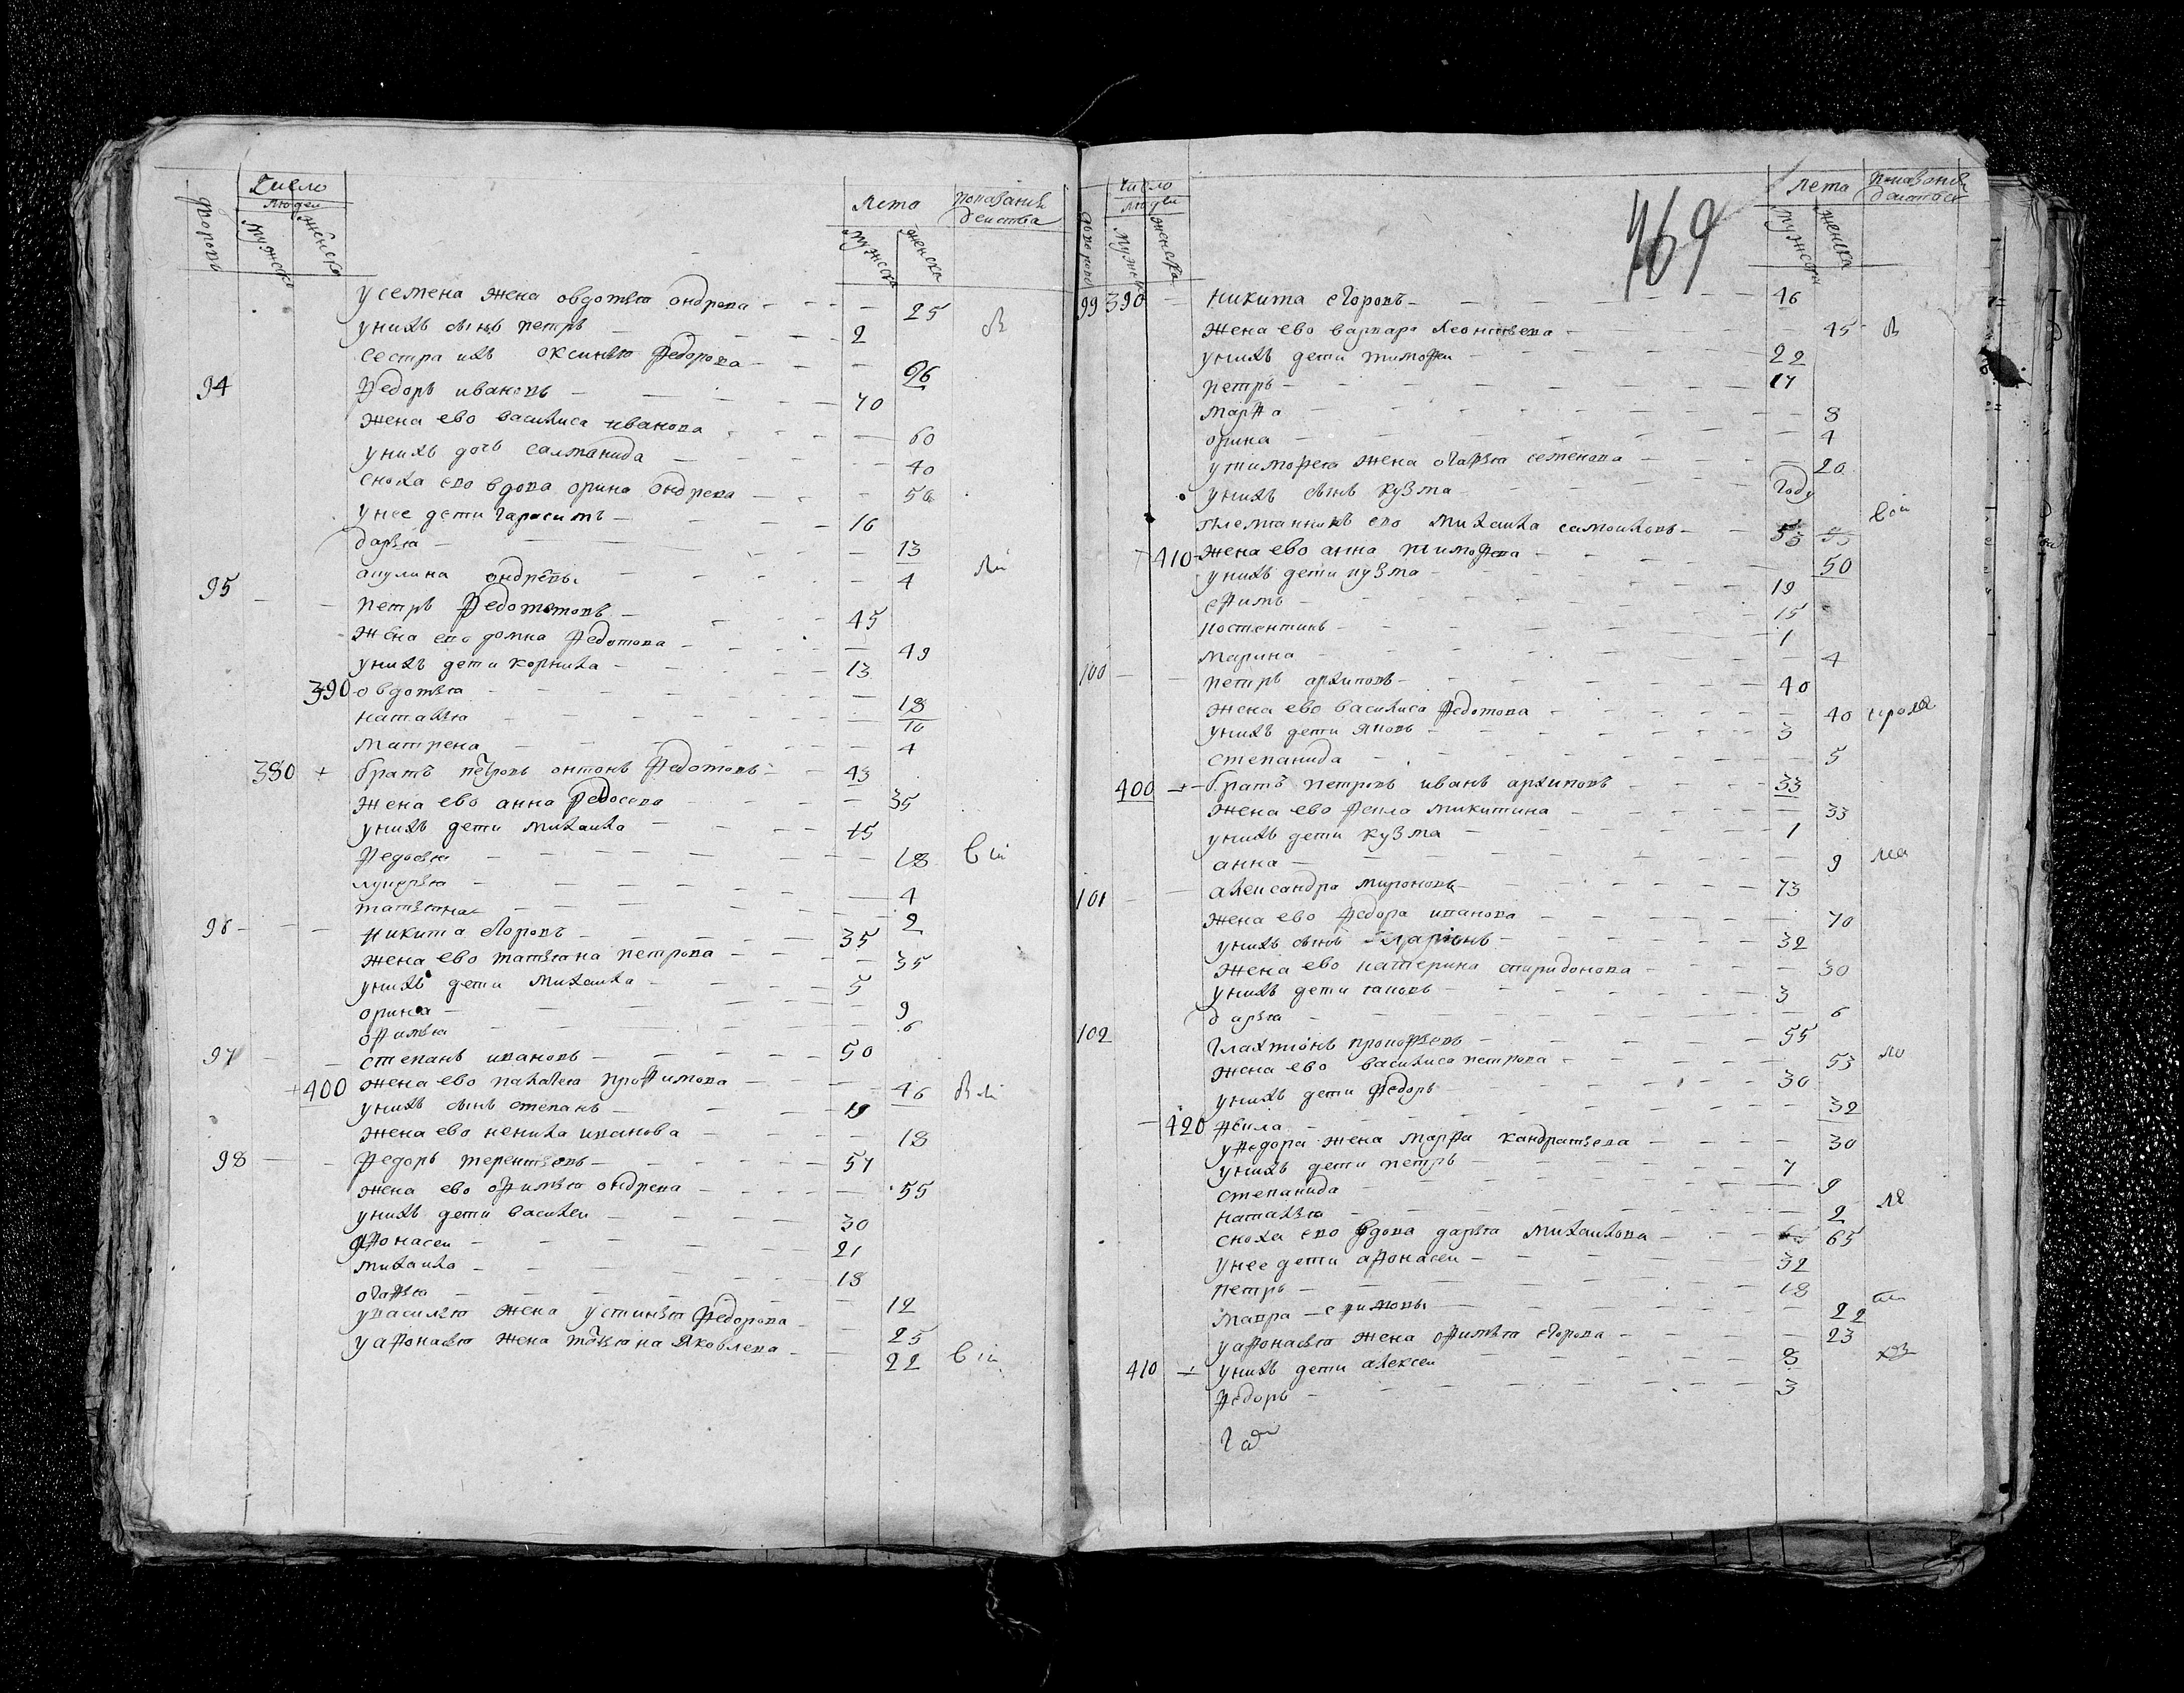 дворовъ
Число
людеи
мужеска
женска
Лета
мужеска
женска
показания
действа
у семена жена овдотья ондреева - 25
у нихъ сынъ петръ - 2
сестра ихъ оксинья федорова - 26
94 федоръ ивановъ - 70
жена ево василиса иванова - 60
у нихъ дочь саламанида - 40
сноха ево вдова орина ондреева - 50
у нее дети гарасимъ - 16
дарья - 13
акулина ондреевы - 4
95 петръ федотовъ - 45
жена ево домна федотова - 49
у нихъ дети корнила - 13
390 овдотья - 18
наталья - 10
матрена - 4
380 + братъ петровъ онтонъ федотовъ - 43
жена ево анна федосеева - 35
у нихъ дети михаила - 15
федосья - 18
лукерья - 4
татьяна - 2
96 никита егоровъ - 35
жена ево татьяна петрова - 35
у нихъ дети михаила - 5
орина - 9
офимья - 6
97 степанъ ивановъ - 50
+ 400 жена ево палагея трофимова - 46
у нихъ сынъ степанъ - 19
жена ево ненила иванова - 18
98 федоръ терентьевъ - 57
жена ево офимья ондреева - 55
у нихъ дети василеи - 30
афонасеи - 21
михаила - 18
огафья - 12
у василья жена устинья федорова - 25
у афонасья жена татьяна яковлева - 22
469
дворовъ
число
людеи
мужеска
женска
лета
мужеска
женска
показания
действа
99 390 никита егоровъ - 46
жена ево варвара леонтьева - 45
у нихъ дети тимофеи - 22
петръ - 17
марфа - 8
орина - 4
у тимофея жена огафья семенова - 20
у нихъ сынъ кузма - году
племянникъ ево михаила самоиловъ - 53
410 жена ево анна тимофеева - 50
у нихъ дети кузма - 19
ефимъ - 15
костентинъ - 1
марина - 4
100 петръ архиповъ - 40
жена ево василиса федотова - 40
у нихъ дети яковъ - 3
степанида - 5
400 + братъ петровъ иванъ архиповъ - 33
жена ево фекла микитина - 33
у нихъ дети кузма - 1
анна - 9
101 александра мироновъ - 73
жена ево федора иванова - 70
у нихъ сынъ иларионъ - 32
жена ево катерина спиридонова - 30
у нихъ дети яковъ - 3
дарья - 6
102 галахтионъ прокофьевъ - 55
жена ево василиса петрова - 53
у нихъ дети федоръ - 30
420 фекла - 32
у федора жена марфа кандратьева - 30
у нихъ дети петръ - 7
степанида - 9
наталья - 2
сноха ево вдова дарья михаилова - 65
у нее дети афонасеи - 32
петръ - 18
мавра ефимовы - 22
у афонасья жена офимья егорова - 23
410 + у нихъ дети алексеи - 8
федоръ - 3